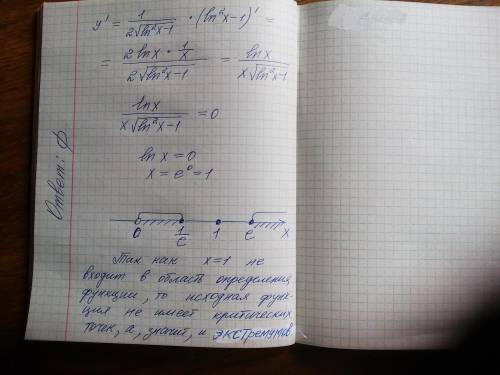 y' = 1/(2√(ln²x-1)) · (ln²x-1)' =
= (2lnx · 1/x)/(2√(ln²x-1)) = lnx/(x√(ln²x-1))
lnx/(x√(ln²x-1)) = 0
lnx = 0
x = e⁰ = 1
0 1/e 1 e x
Так как x=1 не
входит в область определения
функции, то исходная функ-
ция не имеет критических
точек, а, значит, и экстремумов.
Ответ: ф